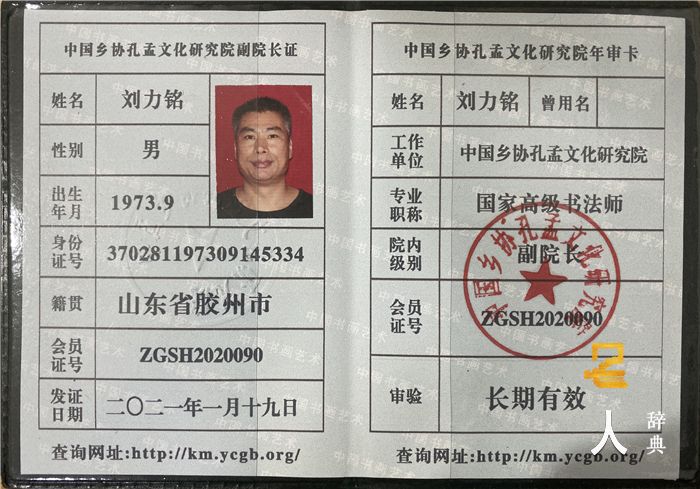 中国乡协孔孟文化研究院副院长证
姓名 刘力铭
性别 男
出生年月 1973.9
身份证号 370281197309145334
籍贯 山东省胶州市
会员证号 ZGSH2020090
发证日期 二〇二一年一月十九日
查询网址:http://km.ycgb.org/
中国乡协孔孟文化研究院年审卡
姓名 刘力铭 曾用名
工作单位 中国乡协孔孟文化研究院
专业职称 国家高级书法师
院内级别 副院长
会员证号 ZGSH2020090
审验 长期有效
查询网址:http://km.ycgb.org/
中国乡协孔孟文化研究院
中国书画艺术
名人辞典